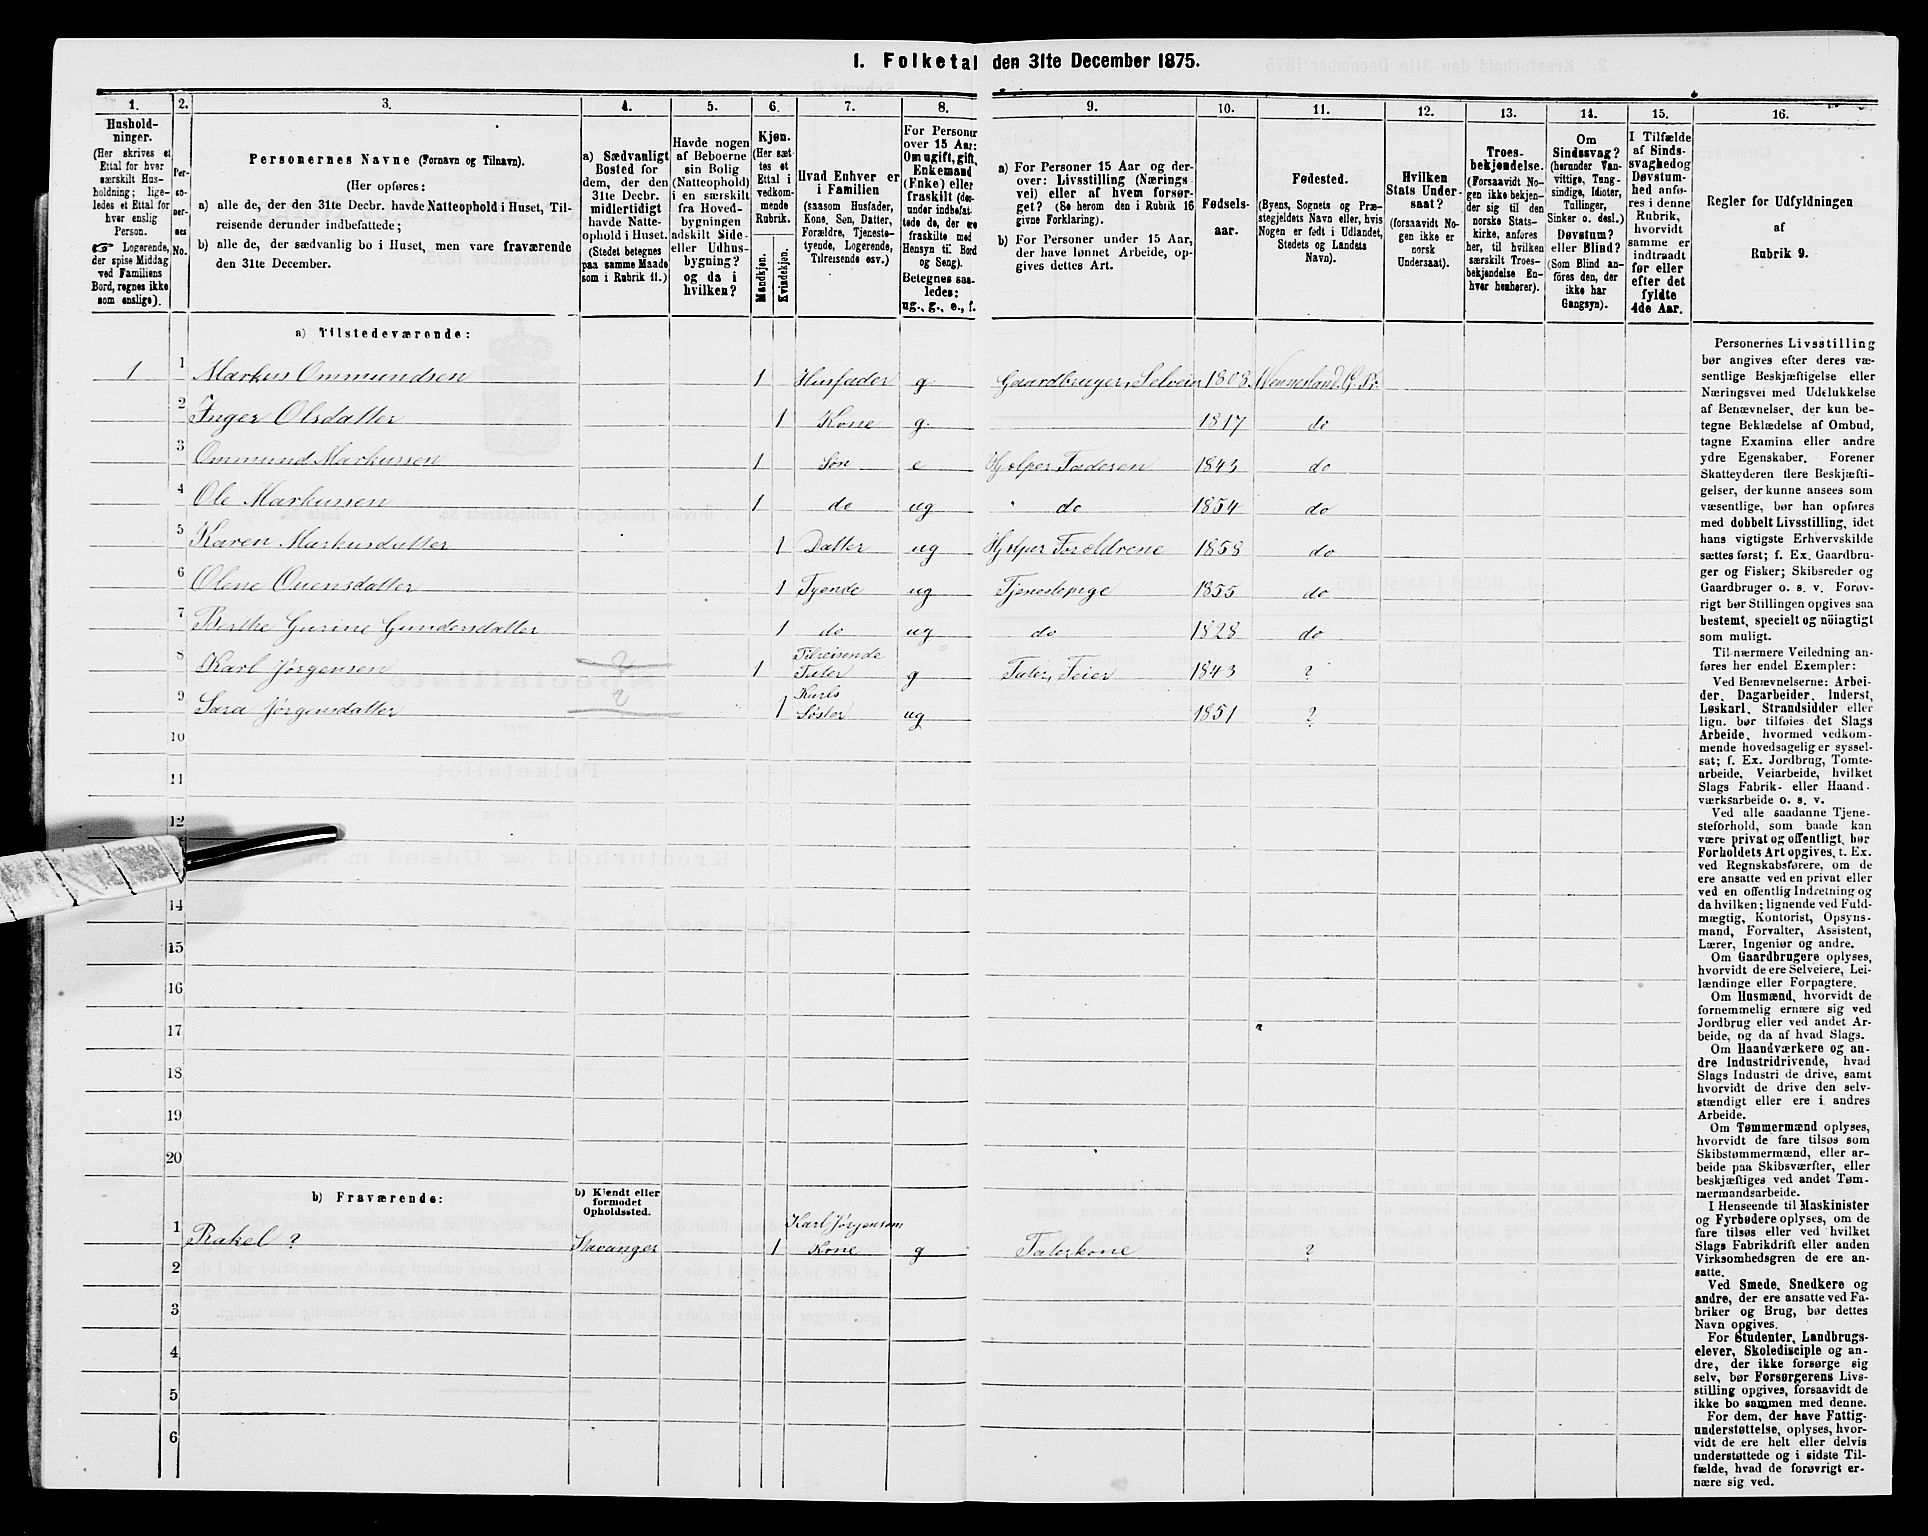 1. Folketal den 31te December 1875.
1. 2. 3. 4. 5. 6. 7. 8. 9. 10. 11. 12. 13. 14. 15. 16.
Husholdninger.
(Her skrives et
Ettal for hver
særskilt Husholdning; ligeledes et Ettal for
hver enslig
Person.
☞ Logerende,
der spise Middag
ved Familiens
Bord, regnes ikke
som enslige).
Personernes No.
Personernes Navne (Fornavn og Tilnavn).
(Her opføres:
a) alle de, der den 31te Decbr. havde Natteophold i Huset, Tilreisende derunder indbefattede;
b) alle de, der sædvanlig bo i Huset, men vare fraværende
den 31te December.
a) Sædvanligt
Bosted for
dem, der den
31te Decbr.
midlertidigt
havde Natteophold i Huset.
(Stedet betegnes
paa samme Maade
som i Rubrik 11.)
Havde nogen
af Beboerne
sin Bolig
(Natteophold)
i en særskilt
fra Hovedbygningen
adskilt Side-
eller Udhusbygning?
og da i
hvilken?
Kjøn.
(Her sættes et
Ettal i
vedkommende
Rubrik.
Mandkjøn.
Kvindekjøn.
Hvad Enhver er
i Familien
(saasom Husfader,
Kone, Søn, Datter,
Forældre, Tjenestetyende, Logerende,
Tilreisende osv.)
For Personer
over 15 Aar:
Om ugift, gift,
Enkemand
(Enke) eller
fraskilt (derunder indbefattede de, der ere
fraskilte med
Hensyn til Bord
og Seng).
Betegnes saaledes:
ug., g., e., f.
a) For Personer 15 Aar og derover: Livsstilling (Næringsvei) eller af hvem forsørget? (Se herom den i Rubrik 16
givne Forklaring).
b) For Personer under 15 Aar,
der have lønnet Arbeide, opgives dettes Art.
Fødselsaar.
Fødested.
(Byens, Sognets og Præstegjeldets Navn eller, hvis
Nogen er født i Udlandet,
Stedets og Landets
Navn).
Hvilken
Stats Undersaat?
(forsaavidt Nogen ikke er
norsk
Undersaat).
Troesbekjendelse.
(Forsaavidt Nogen ikke bekjender sig til den
norske Statskirke, anføres
her, til hvilken
særskilt Troesbekjendelse Enhver henhører).
Om
Sindssvag?
(herunder Vanvittige, Tungsindige, Idioter,
Tullinger,
Sinker o. desl.)
Døvstum?
eller Blind?
(Som Blind anføres den, der
ikke har
Gangsyn).
I Tilfælde
af Sindssvaghed og
Døvstumhed anføres i denne
Rubrik,
hvorvidt
samme er
indtraadt
før eller
efter det
fyldte
4de Aar.
Regler for Udfyldningen
af
Rubrik 9.
a) Tilstedeværende:
1 1 Markus Ommundsen 1 Husfader g. Gaardbruger, Selveier 1808
2 Inger Olsdatter 1 Kone g. 1817 do
3 Ommund Markussen 1 Søn e Hjelper Faderen 1843 do
4 Ole Markussen 1 do ug do 1854 do
5 Karen Markusdatter 1 Datter ug Hjelper Forældrene 1858 do
6 Olene Ouensdatter 1 Tyende ug Tjenestepige 1855 do
7 Berthe Gurine Gundersdatter 1 do ug do 1828 do
8 Karl Jørgensen ? 1 Tilreisende Tater g Tater, Feier 1843 ?
9 Sara Jørgensdatter ? 1 Karls Søster ug 1851 ?
10
11
12
14
15
16
17
18
19
20
b) Fraværende:
b) Kjendt eller
formodet
Opholdssted.
1 Rakel ? Stavanger 1 Karl Jørgensen Kone g Taterkone ?
2
3
4
5
6
Personernes Livsstilling
bør angives efter deres væsentlige Beskjæftigelse eller
Næringsvei med Udelukkelse
af Benævnelser, der kun betegne Beklædelse af Ombud,
tagne Examina eller andre
ydre Egenskaber. Forener
Skatteyderen flere Beskjæftigelser, der kunne ansees som
væsentlige, bør han opføres
med dobbelt Livsstilling, idet
hans vigtigste Erhvervskilde
sættes først; f. Ex. Gaardbruger og Fisker; Skibsreder og
Gaardbruger o. s. v. Forøvrigt bør Stillingen opgives saa
bestemt, specielt og nöiagtigt
som muligt.
Til nærmere Veiledning anføres her endel Exempler:
Ved Benævnelserne: Arbeider, Dagarbeider, Inderst,
Løskarl, Strandsidder eller
lign. bør tilføies det Slags
Arbeide, hvormed vedkommende hovedsagelig er sysselsat; f. Ex. Jordbrug, Tomtearbeide, Veiarbeide, hvilket
Slags Fabrik- eller Haandværksarbeide o. s. v.
Ved alle saadanne Tjenesteforhold, som baade kan
være privat og offentligt, bør
Forholdets Art opgives, t. Ex.
ved Regnskabsførere, om de
ere ansatte ved en privat eller
ved en offentlig Indretning og
da hvilken; lignende ved Fuldmægtig, Kontorist, Opsynsmand, Forvalter, Assistent,
Lærer, Ingeniør og andre.
Om Gaardbrugere oplyses,
hvorvidt de ere Selveiere, Leilændinge eller Forpagtere.
Om Husmænd, hvorvidt de
fornemmelig ernære sig ved
Jordbrug eller ved andet Arbeide, og da af hvad Slags.
Om Haandværkere og andre Industridrivende, hvad
Slags Industri de drive, samt
hvorvidt de drive den selvstændigt eller ere i andres
Arbeide.
Om Tømmermænd oplyses,
hvorvidt de fare tilsøs som
Skibstømmermænd, eller arbeide paa Skibsværfter, eller
beskjæftiges ved andet Tømmermandsarbeide.
I Henseende til Maskinister
og Fyrbødere oplyses, om de
fare tilsøs eller ved hvilket
Slags Fabrikdrift eller anden
Virksomhedsgren de ere ansatte.
Ved Smede, Snedkere og
andre, der ere ansatte ved Fabriker og Brug, bør dettes
Navn opgives.
For Studenter, Landbrugselever, Skoledisciple og andre, der ikke forsørge sig
selv, bør Forsørgerens Livsstilling opgives, forsaavidt de
ikke bo sammen med denne.
For dem, der have Fattigunderstøttelse, oplyses, hvorvidt de ere helt eller delvis
understøttede og i sidste Tilfælde, hvad de forøvrigt ernære sig ved.